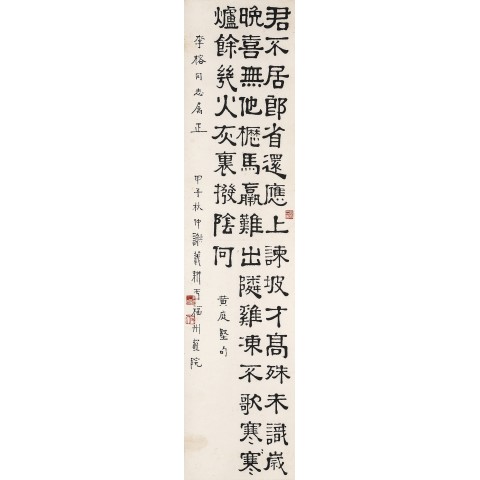 君不居郎省還應上諫坡才高殊未識歲
晚喜無他櫪馬羸難出隣雞凍不歌寒寒
爐餘幾火灰裏撥陰何
黃庭堅句
李榕同志屬正 甲子秋仲謝義耕于福州畫院